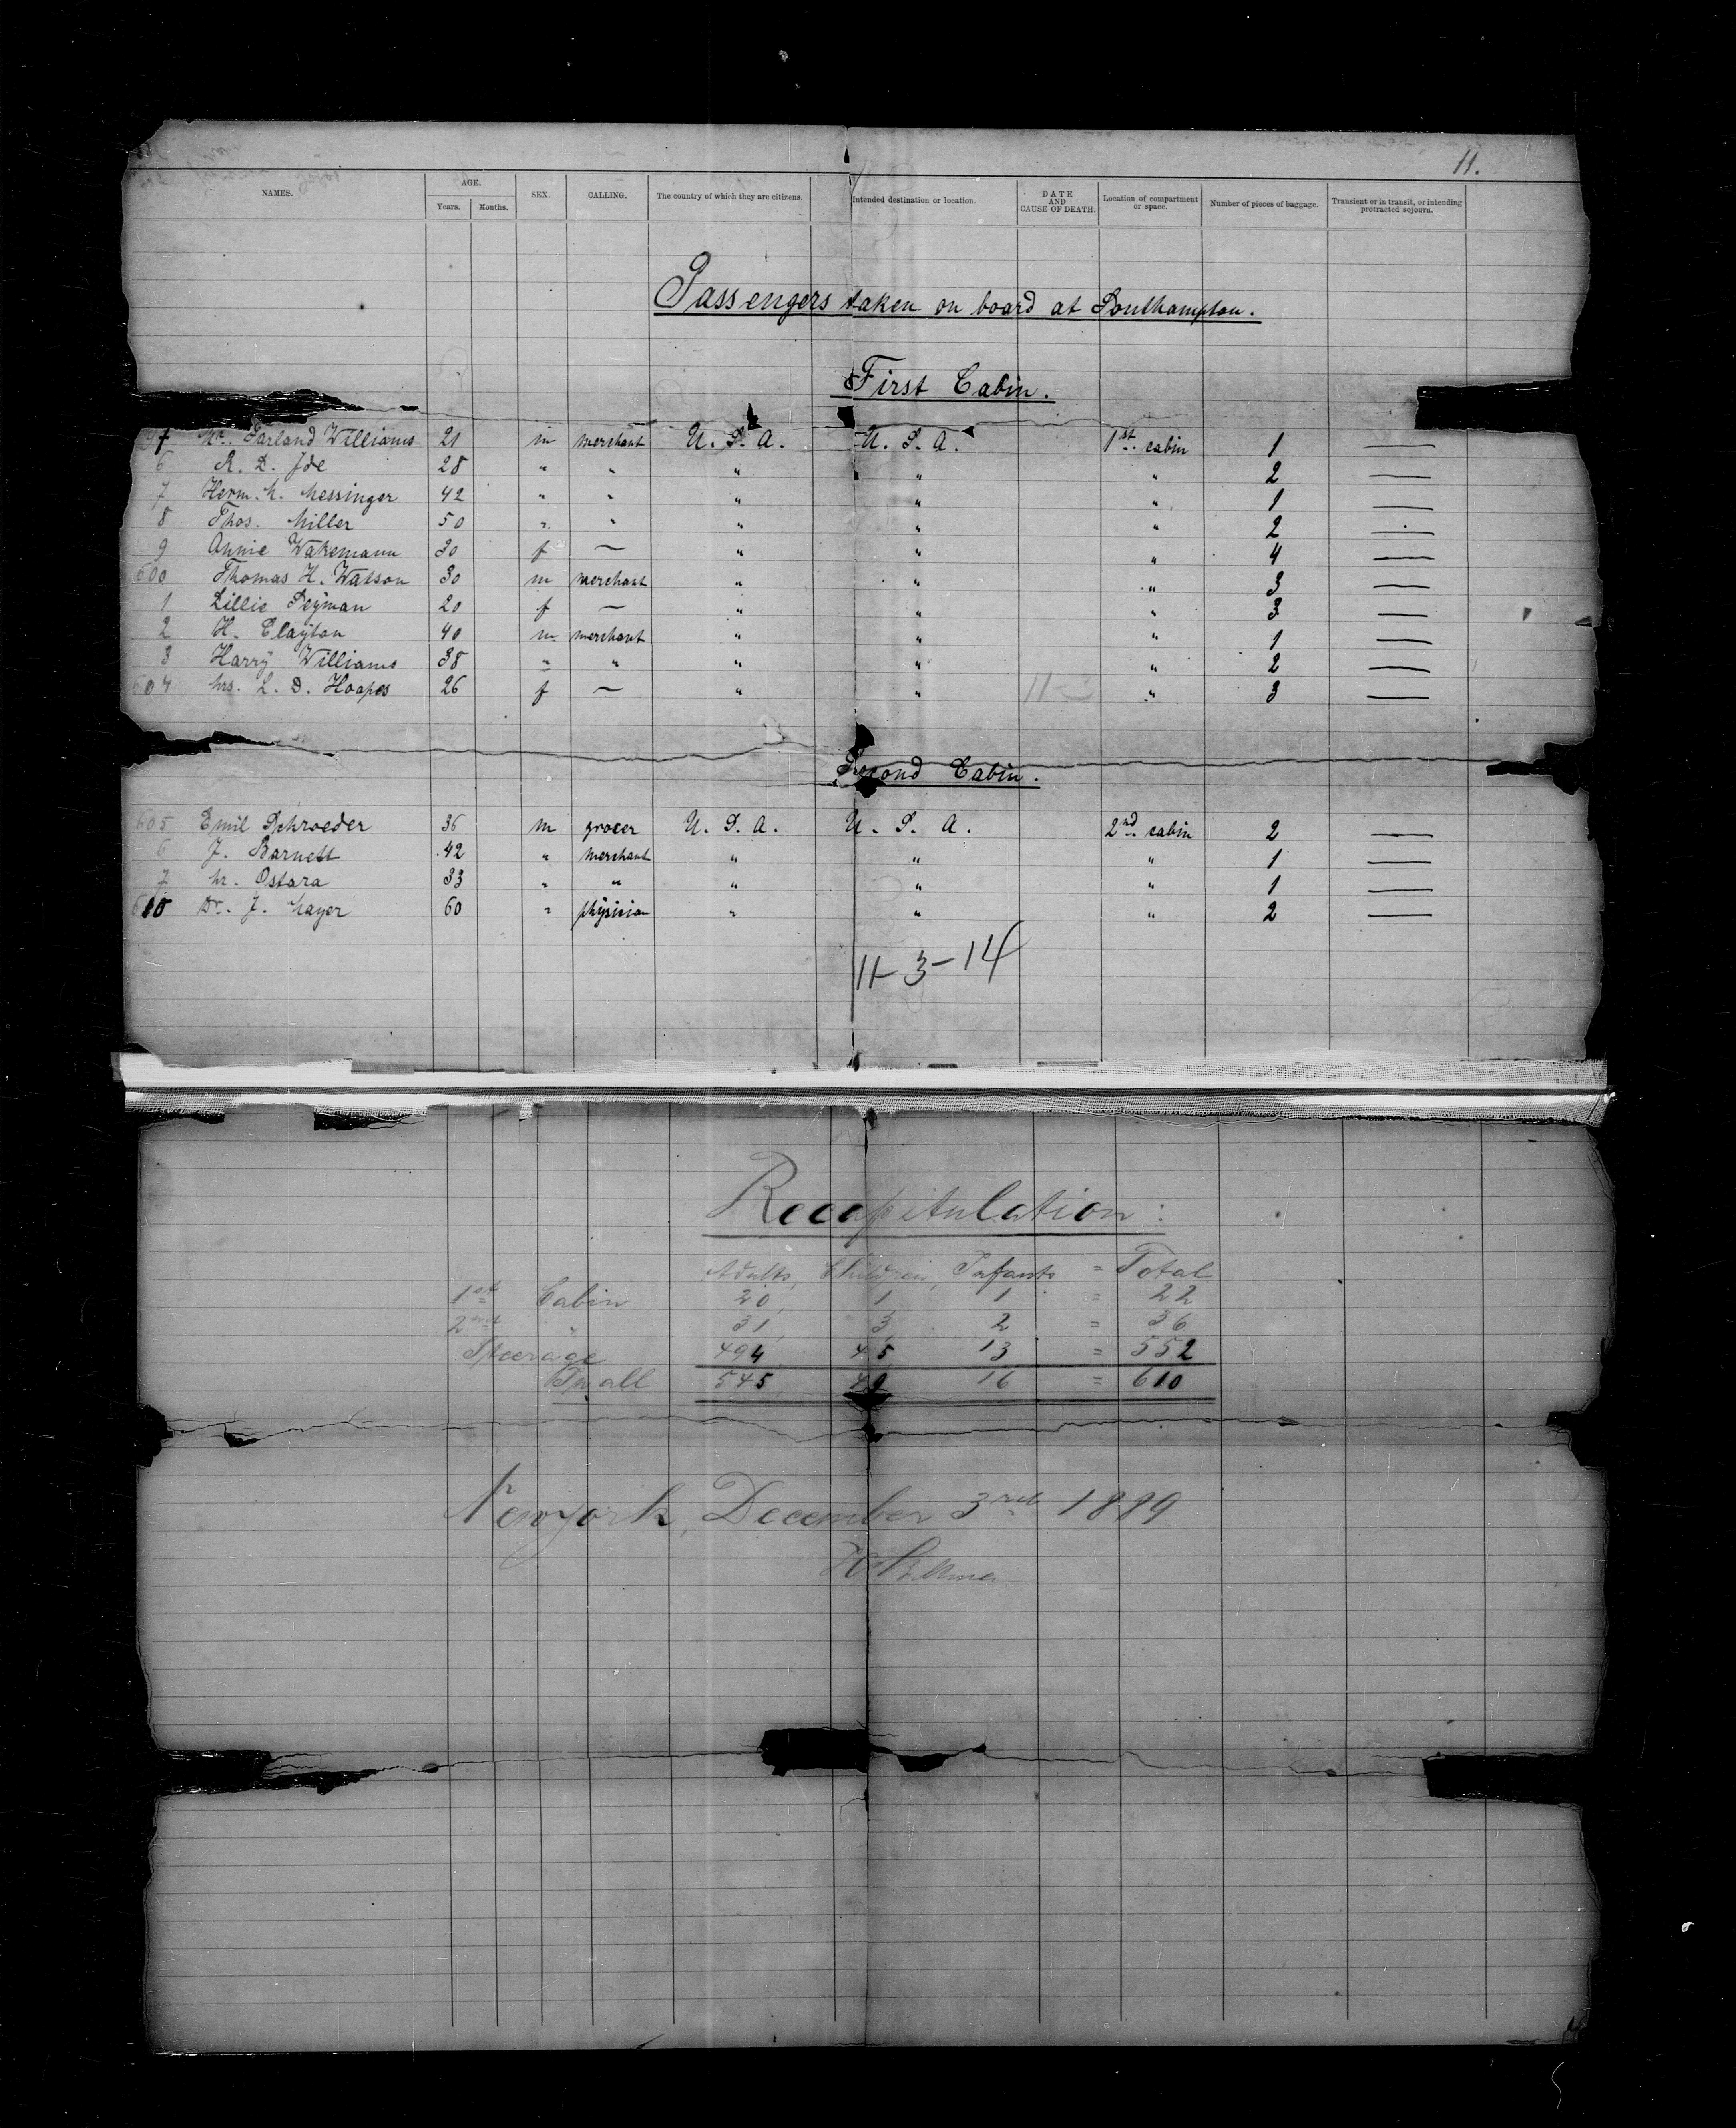 11.
NAMES. AGE. Years. Months. SEX. CALLING. The country of which they are citizens. Intended destination or location. DATE AND CAUSE OF DEATH. Location of compartment or space. Number of pieces of baggage. Transient or in transit, or intending protracted sojourn.
Passengers taken on board at Southampton.
First Cabin.
Mr. Garland Williams 21 m merchant U. S. A. U. S. A. 1st cabin 1 —
6 A. D. Jde 28 " " " " " 2 —
7 Herm. M. Messinger 42 " " " " " 1 —
8 Thos. Miller 50 " " " " " 2 —
9 Annie Wakemann 30 f — " " " 4 —
600 Thomas H. Watson 30 m merchant " " " 3 —
1 Lillie Seyman 20 f — " " " 3 —
2 H. Clayton 40 m merchant " " " 1 —
3 Harry Williams 38 " " " " " 2 —
604 Mrs. L. D. Hoapes 26 f — " " " 3 —
Second Cabin.
605 Emil Schroeder 36 m grocer U. S. A. U. S. A. 2nd cabin 2 —
6 J. Barnett 42 " merchant " " " 1 —
7 M. Ostara 33 " " " " " 1 —
610 Dr. J. Mayer 60 " physician " " " 2 —
11-3-14
Recapitulation:
Adults, Children, Infants = Total
1st Cabin 20, 1 1 = 22
2nd " 31, 3, 2 = 36
Steerage 494 45 13 = 552
In all 545 49 16 = 610
Newyork, December 3rd 1889